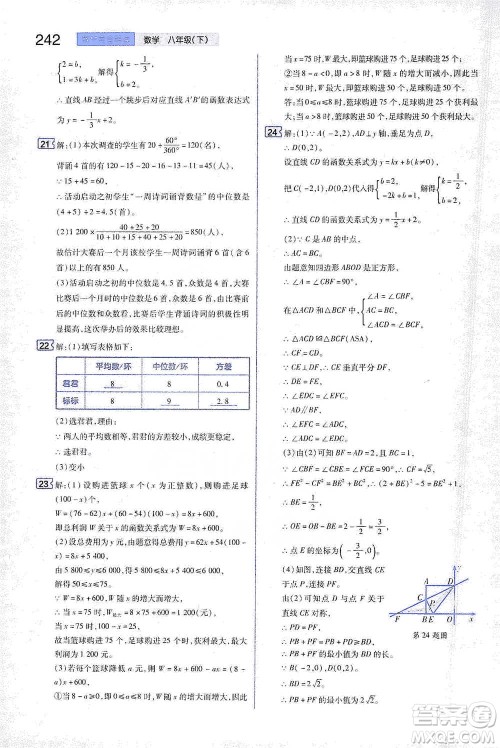 242
数学 八年级(下)
{2=b, 0=6k+b. 解得 {k=-1/3, b=2.
∴直线AB经过一个跳步后对应直线A′B′的函数表达式
为y=-1/3x+2.
21 解:(1)本次调查的学生有20÷60°/360°=120(名),
背诵4首的有120-15-20-16-13-11=45(人).
∴活动启动之初学生“一周诗词诵背数量”的中位数是
(4+5)÷2=4.5(首).
(2)1 200×
=850(人).
故估计大赛后一个月该校学生一周诗词诵背6首(含6
首)以上的有850人.
(3)活动启动之初的中位数是4.5首,众数是4首,大赛
比赛后一个月时的中位数是6首,众数是6首,由比赛前
后的中位数、众数看,比赛后学生背诵诗词的积极性明显
提高,这次举办后的效果比较理想.
22 解:(1)填写表格如下:
平均数/环 中位数/环 方差
君君 8 8 0.4
标标 8 9 2.8
(2)选君君,理由:
∵两人的平均数相等,君君的方差较小,成绩稳定,
∴选君君.
(3)变小
23 解:(1)设购进篮球x个(x为正整数),则购进足球
(100-x)个.
W=(76-62)x+(60-54)(100-x)=8x+600,
即总利润W关于x的函数关系式为W=8x+600.
(2)设总费用为y元,
由题意,得y=62x+54(100-x)=8x+5 400.
由5 800≤y≤6 000,得5 800≤8x+5 400≤6 000.
解得50≤x≤75.
∵W=8x+600,W随x的增大而增大,
∴当x=75时,W最大=8×75+600=1 200.
∴100-x=100-75=25.
故当篮球购进75个,足球购进25个时,该商店获得
最大利润,最大利润为1 200元.
(3)若每个篮球降价a元,则W=(8-a)x+600.
①当8-a≥0,即a≤8时,W随x的增大而增大.
当x=75时,W有最大值,即篮球购进75个,足球购进25个;
②当8-a<0,即a>8时,W随x的增大而减小.
当x=50时,W有最大值,即篮球购进50个,足球购进50个.
答:当a≤8时,篮球购进75个,足球购进25个获利最大;
当a>8时,篮球购进50个,足球购进50个获利最大.
24 解:(1)∵A(-2,2),AD⊥y轴,垂足为点D,
∴D(0,2).
设直线CD的函数关系式为y=kx+b(k≠0).
把C(-2,1),D(0,2)代入,得{b=2, -2k+b=1. 解得{k=1/2, b=2.
∴直线CD的函数关系式为y=1/2x+2.
(2)∵∠A=∠CBF=90°,
由题意知四边形ABOD是正方形,
在△ACD和△BCF中,
∠A=∠CBF,
AC=BC,
∠ACD=∠BCF,
∴△ACD≌△BCF(ASA).
∴CF=CD.
∵CE⊥DF,
∴CE垂直平分DF.
∴DE=FE.
∴∠EDC=∠EFC.
∵AD∥BF,
∴∠EFC=∠ADC.
∴∠ADC=∠EDC.
(3)由(2),可得BF=AD=2.
∴FE²-CF²=CE²,CE²=BC²+BE²,
∴BE=1/2.
∴OE=OB-BE=3/2.
∴点E的坐标为(-3/2,0).
(4)如图,连接BD交直线CE
于点P,连接PF.
由(2)可得点D与点F关于
直线CE对称,
∴PD=PF.
∴PB+PF=PB+PD≥BD.
∵B(-2,0),D(0,2),
∴PB+PF的最小值为2√2.
第24题图
MXQE.COM